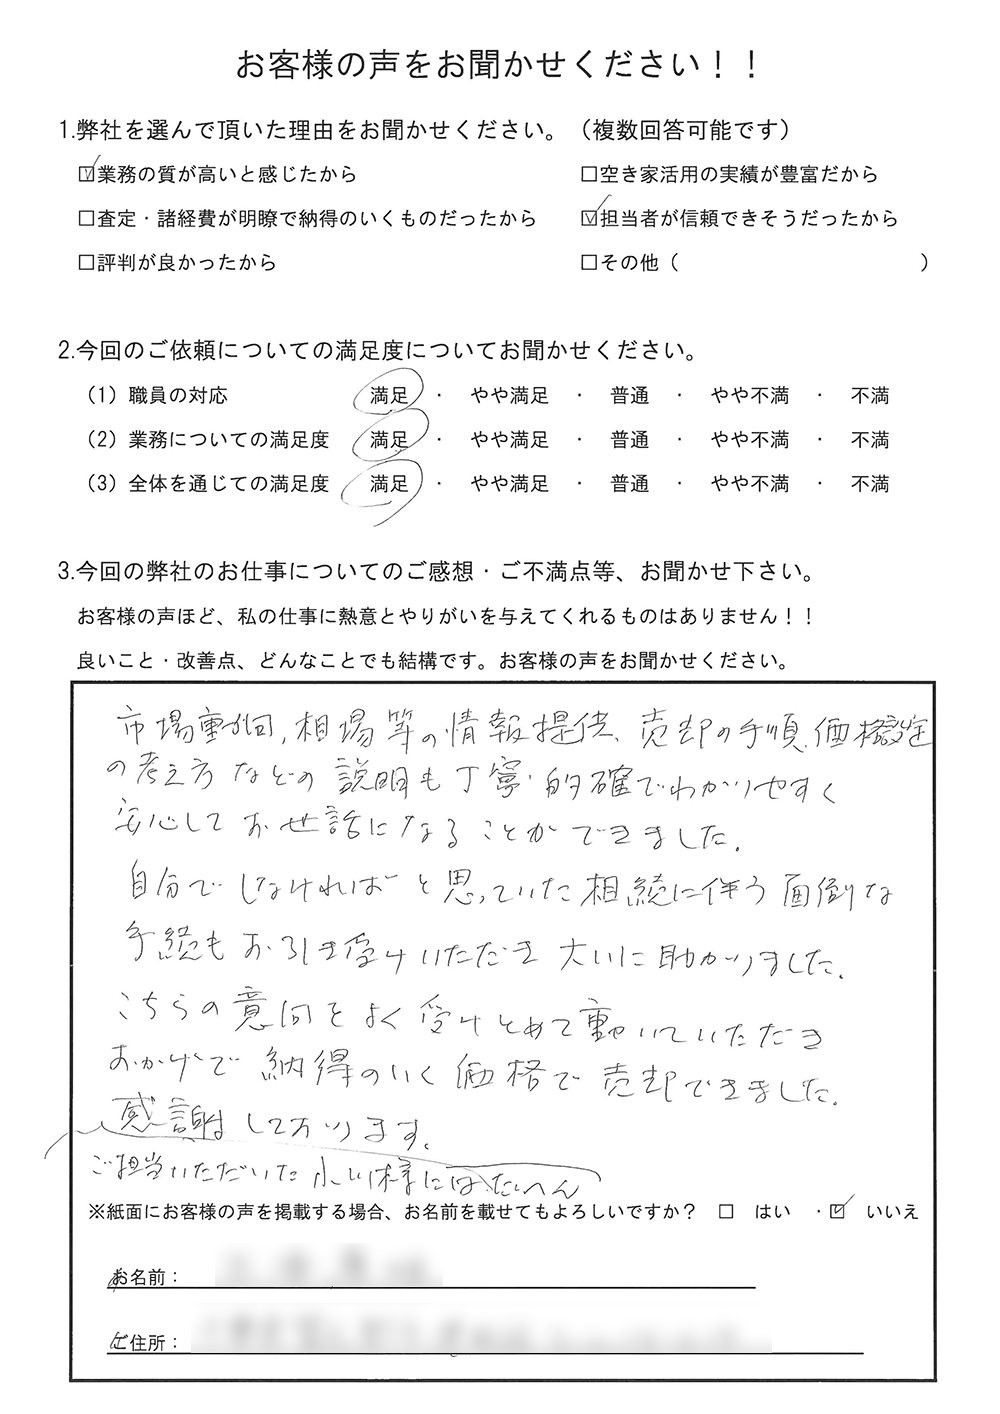 お客様の声をお聞かせください！！
1.弊社を選んで頂いた理由をお聞かせください。（複数回答可能です）
☑業務の質が高いと感じたから　□空き家活用の実績が豊富だから
□査定・諸経費が明瞭で納得のいくものだったから　☑担当者が信頼できそうだったから
□評判が良かったから　□その他（　）
2.今回のご依頼についての満足度についてお聞かせください。
（1）職員の対応　満足 ・ やや満足 ・ 普通 ・ やや不満 ・ 不満
（2）業務についての満足度　満足 ・ やや満足 ・ 普通 ・ やや不満 ・ 不満
（3）全体を通じての満足度　満足 ・ やや満足 ・ 普通 ・ やや不満 ・ 不満
3.今回の弊社のお仕事についてのご感想・ご不満点等、お聞かせ下さい。
お客様の声ほど、私の仕事に熱意とやりがいを与えてくれるものはありません！！
良いこと・改善点、どんなことでも結構です。お客様の声をお聞かせください。
市場動向,相場等の情報提供、売却の手順、価格設定
の考え方などの説明も丁寧・的確でわかりやすく
安心してお世話になることができました.
自分でしなければと思っていた相続に伴う面倒な
手続もお引き受けいただき大いに助かりました.
こちらの意向をよく受けとめて動いていただき
おかげで納得のいく価格で売却できました.
感謝しております.
ご担当いただいた小川様にはたいへん
※紙面にお客様の声を掲載する場合、お名前を載せてもよろしいですか？　□　はい　・☑　いいえ
お名前：
ご住所：